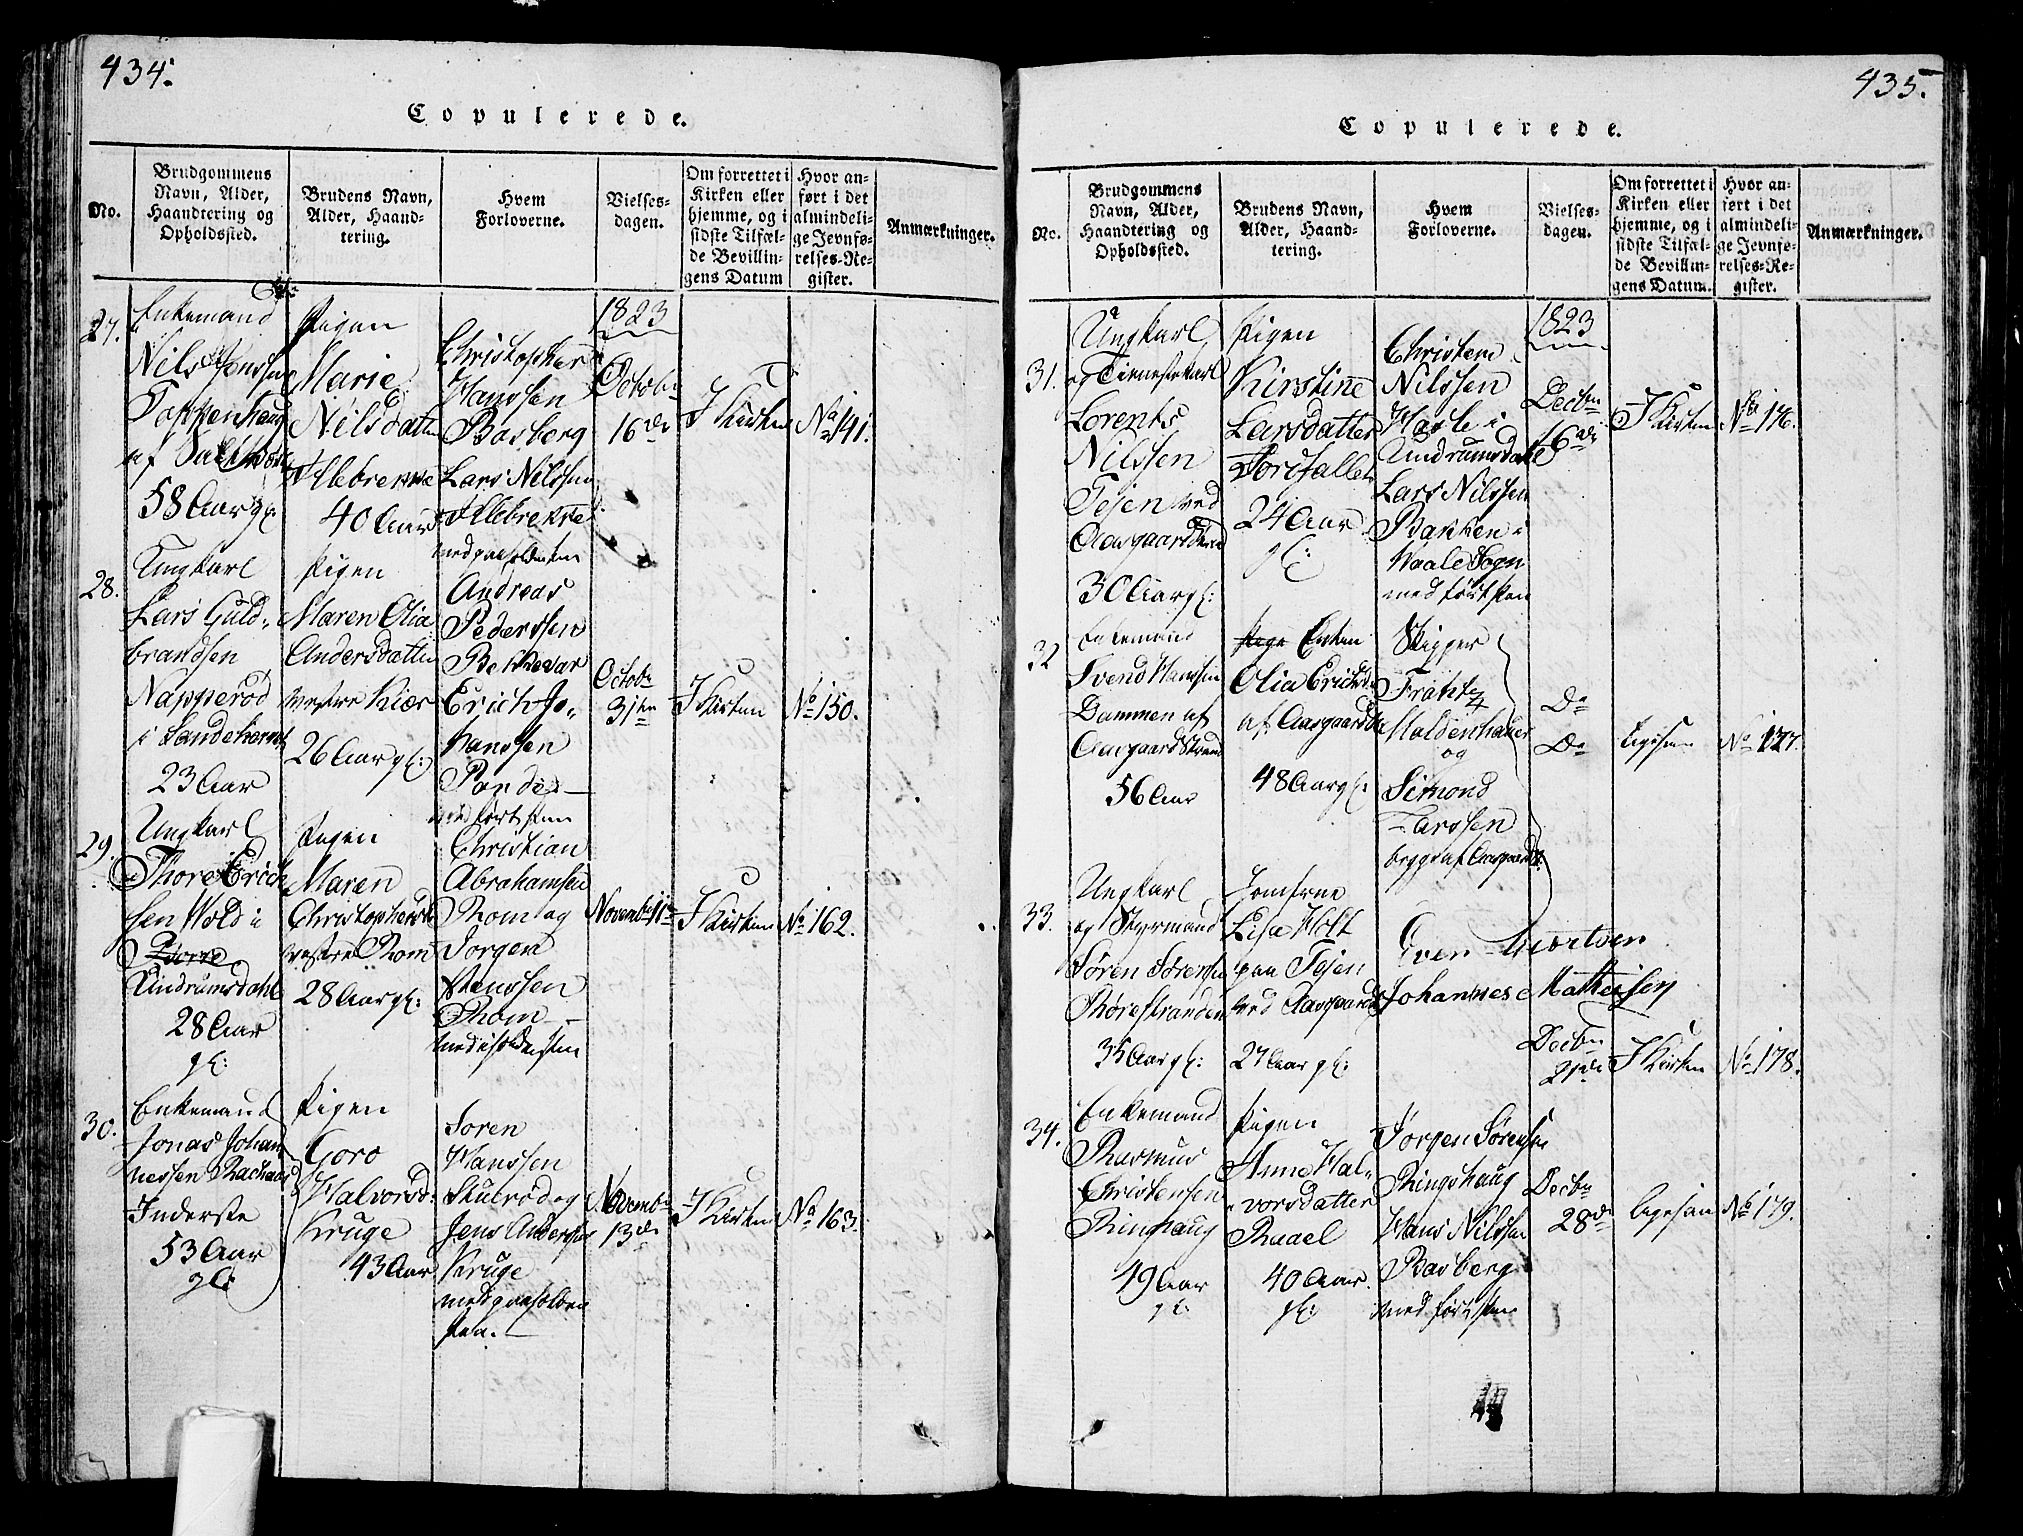 434.
Copulerede.
No.
Brudgommens
Navn, Alder,
Haandtering og
Opholdssted.
Brudens Navn,
Alder, Haand-
tering.
Hvem
Forloverne.
Vielses-
dagen.
Om forrettet i
Kirken eller
hjemme, og i
sidste Tilfæl-
de Bevillin-
gens Datum
Hvor an-
ført i det
almindeli-
ge Jevnfø-
relses-Re-
gister.
Anmærkninger.
27.
Enkemand
Nils Jonssen
af
58 Aar gl:
Pigen
Marie
Nilsdatter
Illebrekke
40 Aar
Christopher
Hanssen
Basberg
Lars Nilssen
Illebrekke
1823
Octobr
16de
I Kirken
No 141.
28.
Ungkarl
Lars Guld-
brandsen
Napperød
i Sandeherred
23 Aar
Pigen
Maren Olia
Andersdatter
Kiær
26 Aar gl:
Andreas
Pederssen
Bekkevar
Erich Jo-
hanssen
med fortsken
Octobr
31te
I Kirken
No 150.
29.
Ungkarl
Thore Erich
sen Wold i
Undrumsdahl
28 Aar
gl:
Pigen
Maren
Christophersd
vestre Rom
28 Aar gl:
Christian
Abrahamsen
Rom og
Jørgen
Hanssen
Rom
Novembr 11te
I Kirken
No 162.
30.
Enkemand
Jonas Johan
nessen
Inderste
53 Aar
gl:
Pigen
Goro
Halvorsd:
Kruge
43 Aar
Soren
Hanssen
Jens Anderssen
Kruge
Novembr
13de
I Kirken
No 163.
435.
Copulerede.
No.
Brudgommens
Navn, Alder,
Haandtering og
Opholdssted.
Brudens Navn,
Alder, Haand-
tering.
Hvem
Forloverne.
Vielses-
dagen.
Om forrettet i
Kirken eller
hjemme, og i
sidste Tilfæl-
de Bevillin-
gens Datum.
Hvor an-
ført i det
almindeli-
ge Jevnfø-
relses-Re-
gister.
Anmærkninger.
31.
Ungkarl
og Tienestekarl
Lorents
Nilssen
Tejen ved
Aasgaardstrand
30 Aar gl:
Pigen
Kirstine
Larsdatter
24 Aar
gl:
Christen
Nilssen
i
Undrumsdahl
Lars Nilssen
Bakken i
Waale Sogn
1823
Decbr
16de
I Kirken
No 176.
32
Enkemand
Svend Hanssen
Dammen af
Aasgaardstrand
56 Aar
Enken
Olia Erichsd
af Aasgaards
48 Aar gl:
Skipper
Frantz
Moldenhauer
og
Simond
Larssen
begge af Aasgaards
Do
Do
Ligesaa
No 177.
33.
Ungkarl
og Styrmand
Søren Sørenssen
35 Aar gl:
Jomfrue
Lisa Holt
paa Tejen
ved Aasgaards
27 Aar gl:
Even
Johannes Mathesen
Decbr
21de
I Kirken
No 178.
34.
Enkemand
Rasmus
Christensen
Ringhaug
49 Aar
gl:
Pigen
Anne Hal-
vorsdatter
Rael
40 Aar.
gl:
Jørgen Sørenssen
Ringshaug
Hans Nilssen
Basberg
Decbr
28de
Ligesaa
No 179.